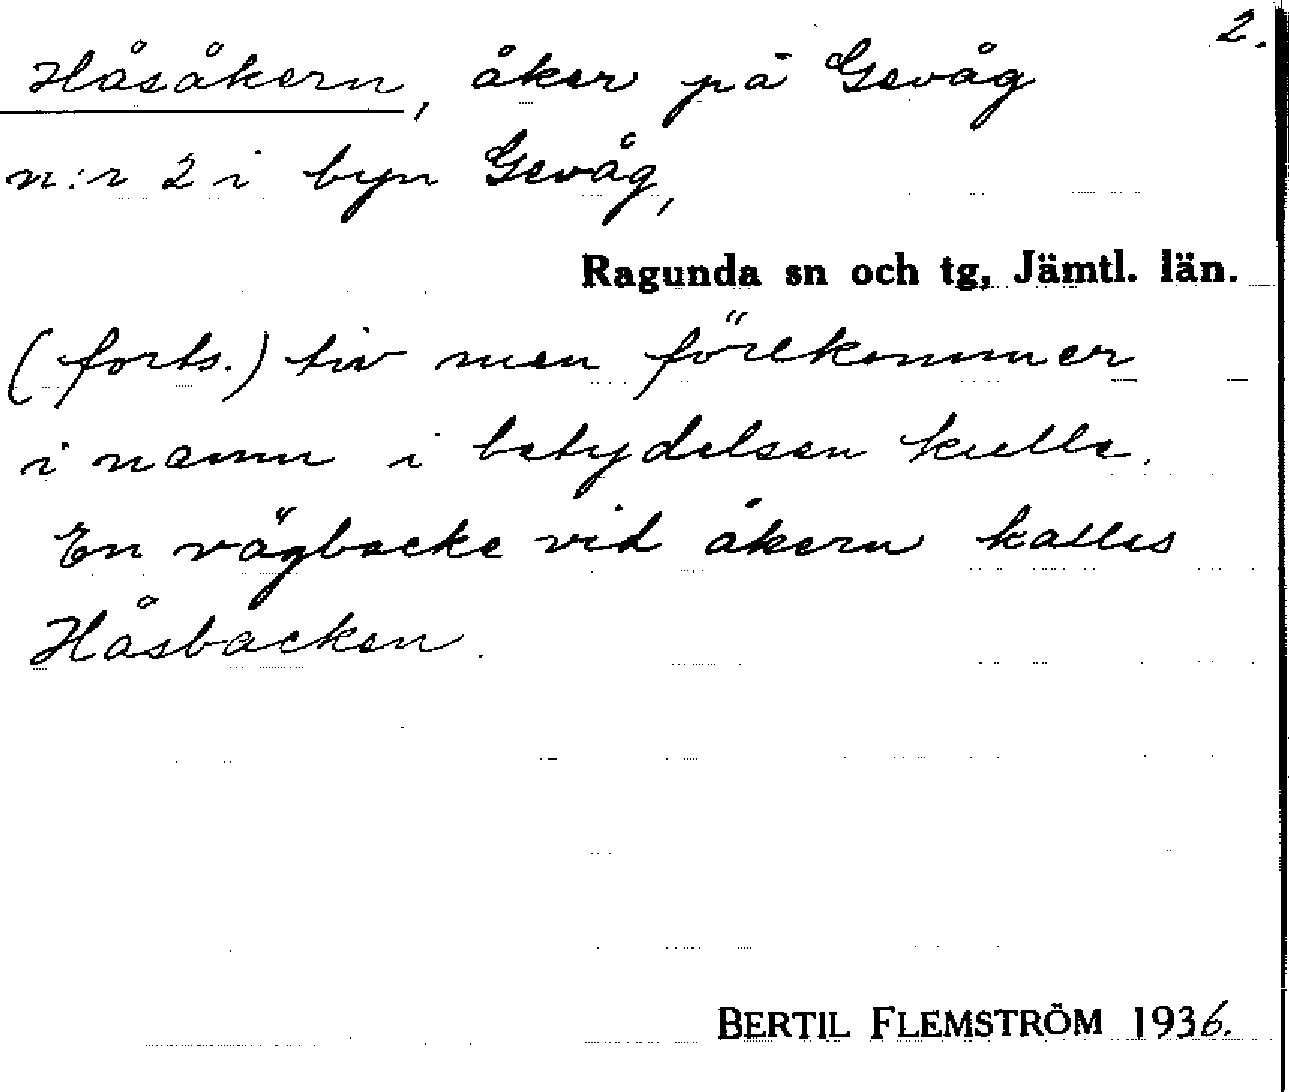 2.
Håsåkern, åker på Gevåg
n:r 2 i byn Gevåg,
Ragunda sn och tg, Jämtl. län.
(forts.) tiv men förekommer
i namn i betydelsen kulle.
En vägbacke vid åkern kallas
Håsbacken.
BERTIL FLEMSTRÖM 1936.